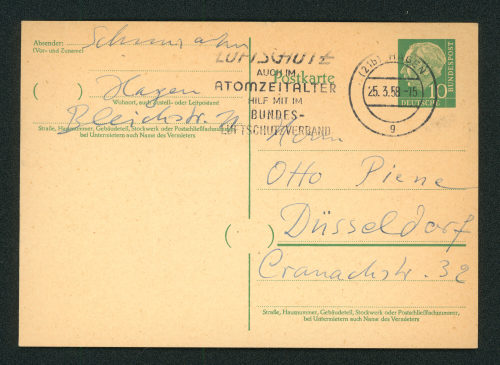 Absender:
(Vor- und Zuname)
LUFTSCHUTZ
AUCH IM
Postkarte
ATOMZEITALTER
HILF MIT IM
BUNDES-
LUFTSCHUTZVERBAND
(21b) HAGEN
25.3.58.-15
g
10
DEUTSCHE
BUNDESPOST
( ) Hagen
Wohnort, auch Zustell- oder Leitpostamt
Bleichstr.
Straße, Hausnummer, Gebäudeteil, Stockwerk oder Postschließfachnummer,
bei Untermietern auch Name des Vermieters
Herrn
Otto Piene
Düsseldorf
( )
Cranachstr. 32
Straße, Hausnummer, Gebäudeteil, Stockwerk oder Postschließfachnummer,
bei Untermietern auch Name des Vermieters